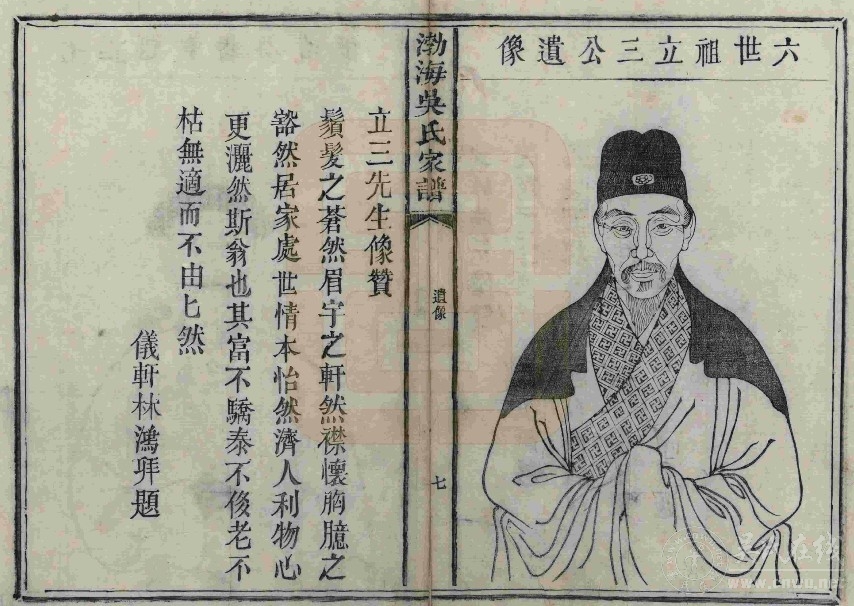 六世祖立三公遺像
渤海吳氏家譜
遺像
七
立三先生像贊
鬚髮之蒼然眉宇之軒然襟懷胸臆之
豁然居家處世情本怡然濟人利物心
更灑然斯翁也其富不驕泰不後老不
枯無適而不由匕然
儀軒林鴻拜題
www.cnwu.net